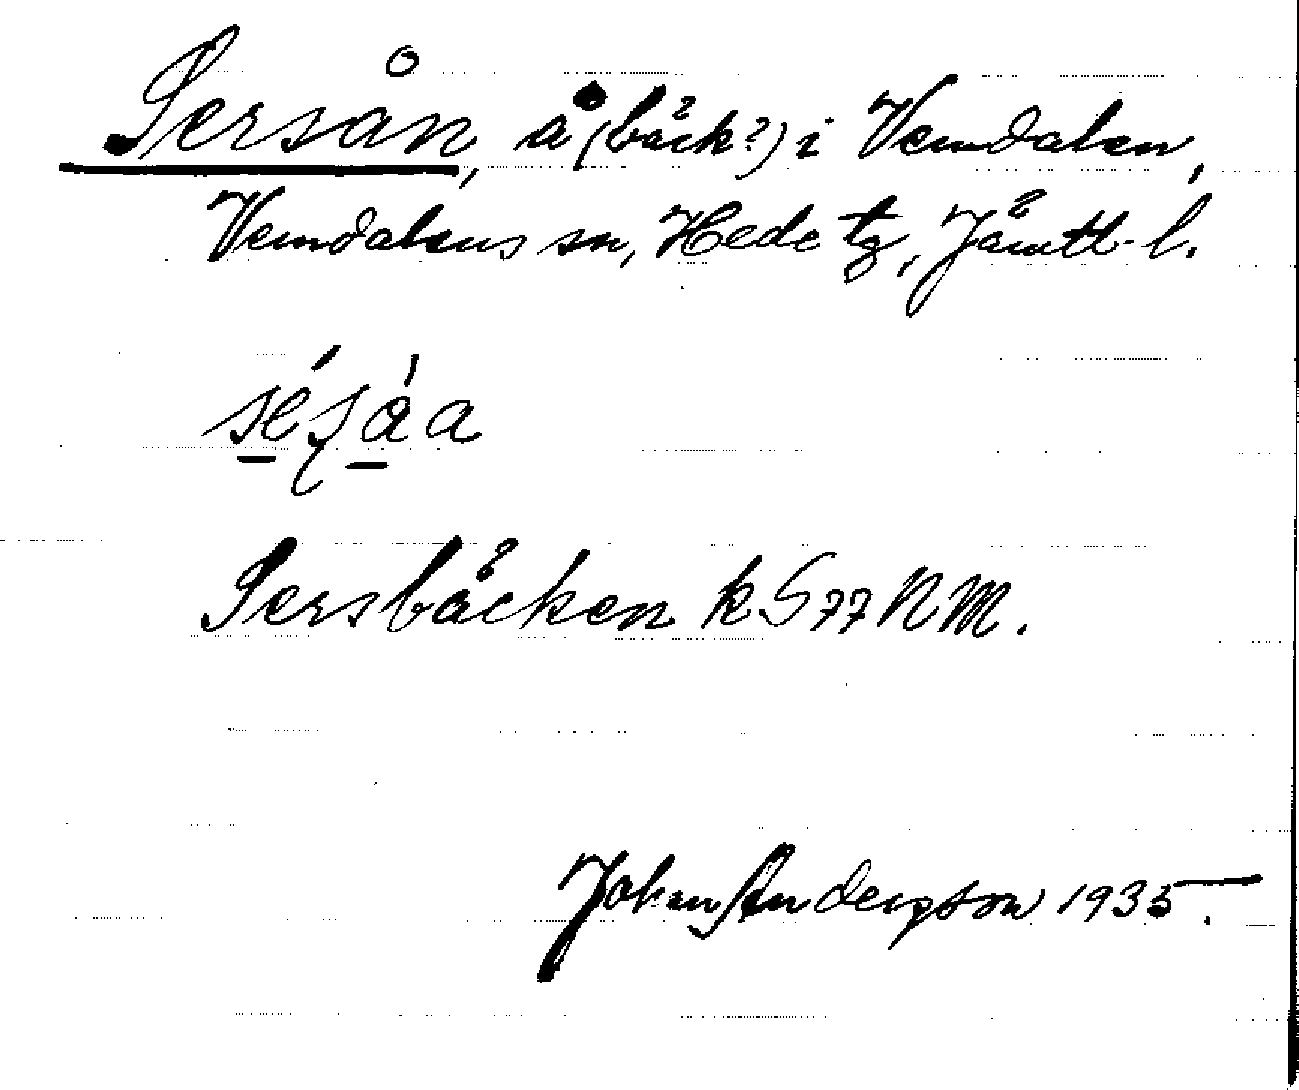 Sersån, å (bäck?) i Vemdalen,
Vemdalens sn, Hede tg, Jämtl. l.
Sersbäcken k S77 NM.
Johan Anderzson 1935.